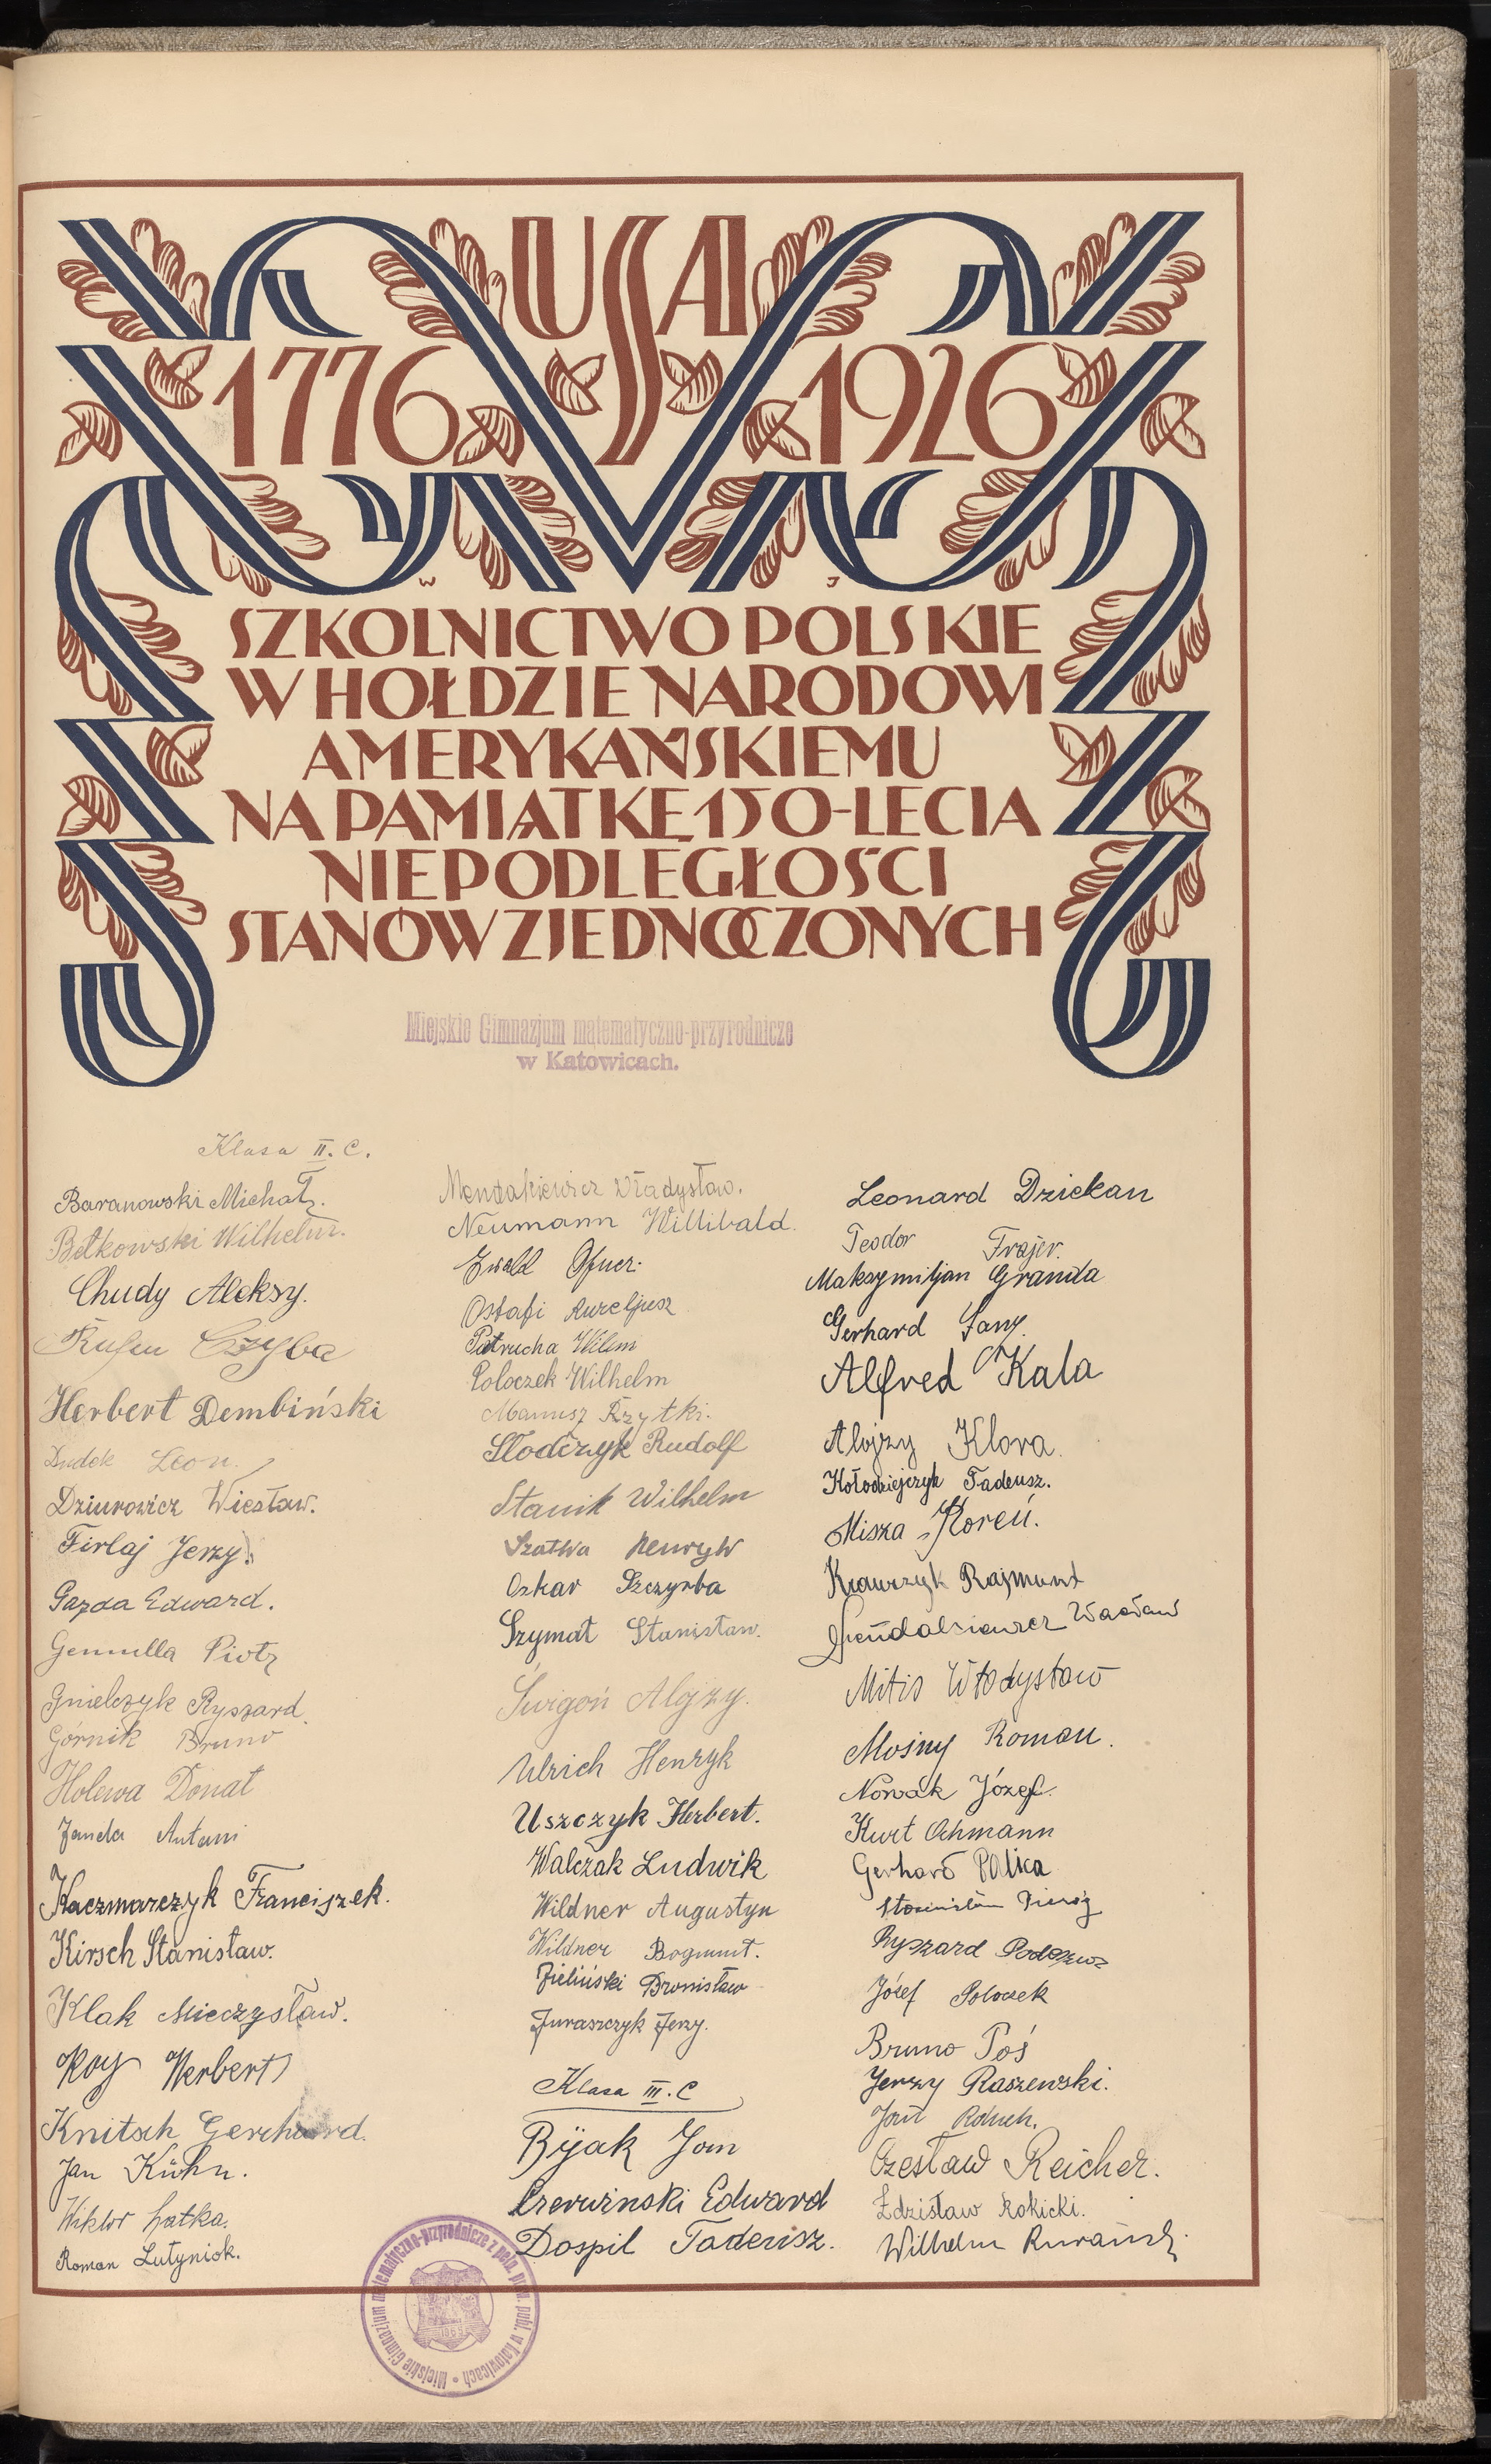 USA
1776 1926
W J
SZKOLNICTWO POLSKIE
W HOŁDZIE NARODOWI
AMERYKAŃSKIEMU
NA PAMIĄTKĘ 150-LECIA
NIEPODLEGŁOŚCI
STANÓW ZJEDNOCZONYCH
Miejskie Gimnazjum matematyczno-przyrodnicze
w Katowicach.
Klasa II. C.
Baranowski Michał.
Bełkowski Wilhelm.
Chudy Aleksy.
Rufin Czyba
Herbert Dembiński
Dudek Leon.
Dziurowicz Wiesław.
Firlaj Jerzy.
Gazda Edward.
Gemulla Piotr
Gnielczyk Ryszard
Górnik Bruno
Holewa Donat
Janda Antoni
Kaczmarczyk Franciszek.
Kirsch Stanisław.
Klak Mieczysław.
Koy Herbert
Knitsch Gerhard.
Jan Kühn.
Wiktor Łatka.
Roman Lutyniok.
Mendakiewicz Władysław.
Neumann Willibald.
Ewald
Ostafi Aureljusz
Patrucha Wilem
Poloczek Wilhelm
Manusz Rzytki.
Słodczyk Rudolf
Stanik Wilhelm
Szatka Henryk
Oskar Szczyrba
Szymat Stanisław.
Świgoń Alojzy.
Ulrich Henryk
Uszczyk Herbert.
Walczak Ludwik
Wildner Augustyn
Wildner Bogumił.
Zieliński Bronisław
Juraszczyk Jerzy.
Klasa III. C
Bijak Jan
Czerwinski Edward
Dospil Tadeusz.
Leonard Dziekan
Teodor Frajer.
Maksymiljan Granda
Gerhard Jany.
Alfred Kala
Alojzy Klora.
Kołodziejczyk Tadeusz.
Misza Koreń.
Krawczyk Rajmunt
Wacław
Mitis Władysław
Mośny Roman.
Nowak Józef.
Kurt Ochmann
Gerhard Palica
Stanisław Pieróg
Ryszard
Józef Poloczek
Bruno Poś
Jerzy Raszewski.
Jan
Czesław Reicher.
Zdzisław Rokicki.
Wilhelm
Miejskie Gimnazjum matematyczno-przyrodnicze z pełn. praw. publ. w Katowicach